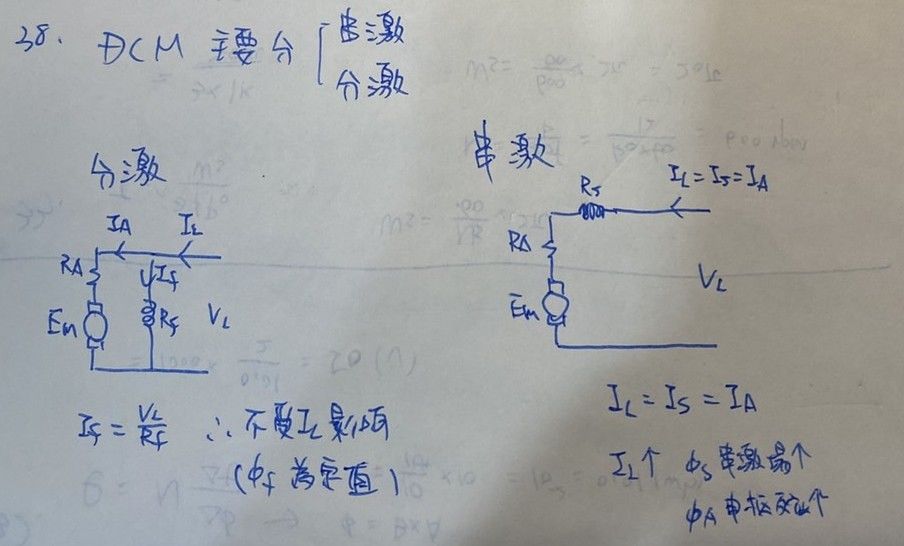 38. DCM 主要分 串激
分激
分激
IA IL
RA If
Em Rf VL
If = VL/RF ∴ 不受IL影响
(φf 為定值)
串激
Rs IL = Is = IA
RA
Em VL
IL = IS = IA
IL↑ φs 串激場↑
φA 电枢反应↑